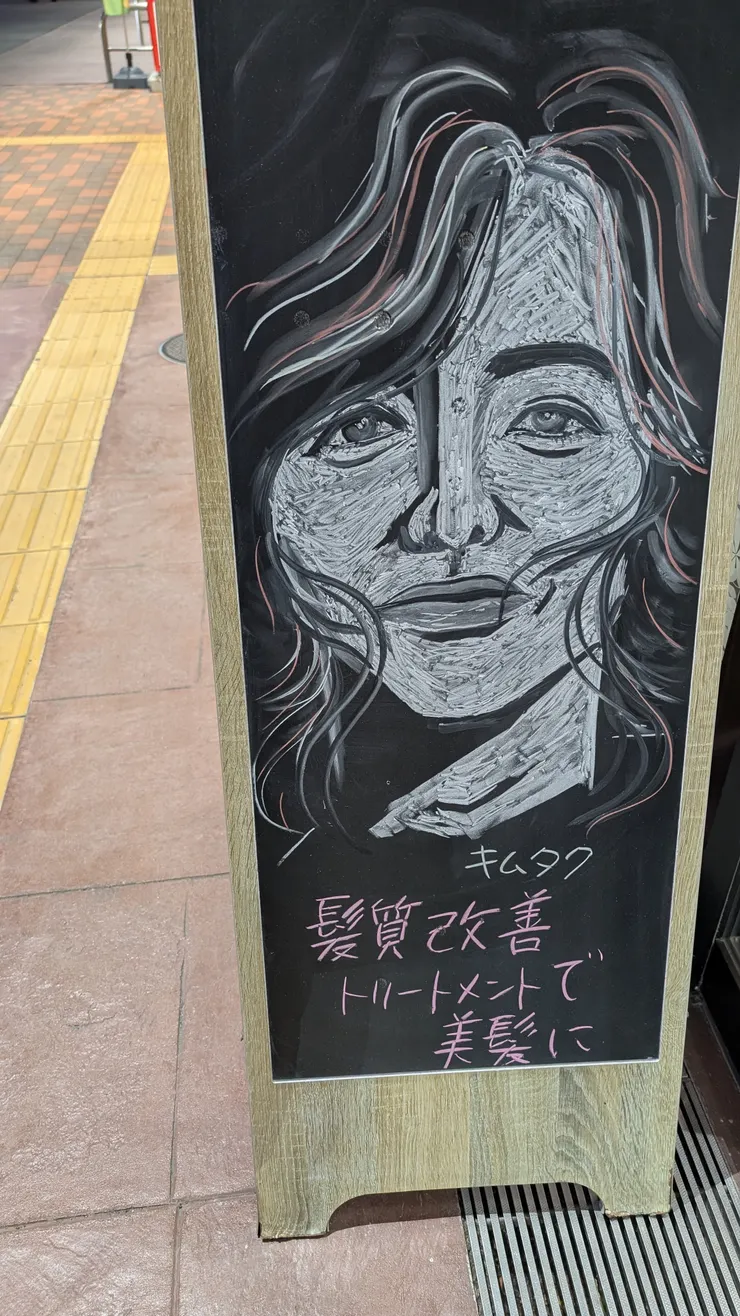 キムタク
髪質改善
トリートメントで
美髪に